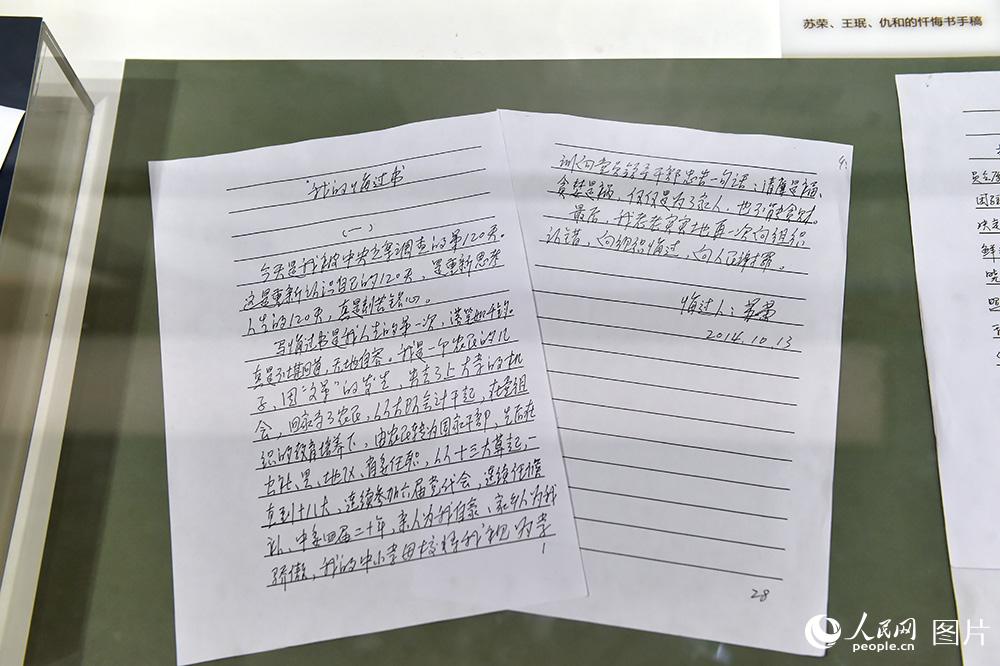 苏荣、王珉、仇和的忏悔书手稿
我的悔过书
(一)
今天是我被中央立案调查的第120天。
这是重新认识自己的120天,是重新思考
人生的120天,真是刻骨铭心。
写悔过书是我人生的第一次,落笔如千钧。
真是不堪回首,无地自容。我是一个农民的儿
子,因"文革"的发生,失去了上大学的机
会,回家当了农民,从大队会计干起,在党组
织的教育培养下,由农民转为国家干部,先后在
公社、县、地区、省委任职,从十三大算起,一
直到十八大,连续参加六届党代会,连续任候
补、中委四届二十年,亲人为我自豪、家乡人为我
骄傲,我的中小学母校将我视为学
1
训向党员领导干部忠告一句话:清廉是福、
贪婪是祸,仅仅是为了家人,也不能贪财。
最后,我老老实实地再一次向组织
认错,向组织悔过,向人民谢罪。
悔过人:苏荣
2014.10.13
28
决定
鲜
人民网 图片
people.cn